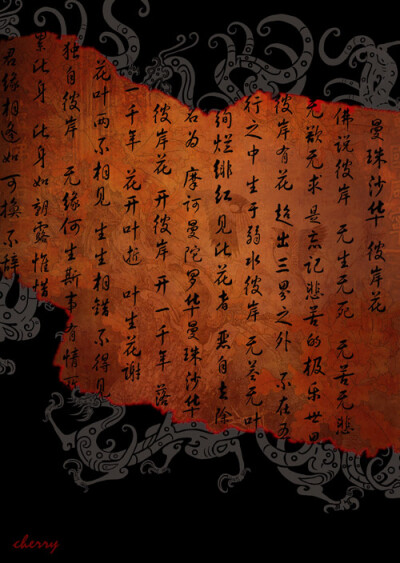 曼珠沙华 彼岸花
佛说彼岸 无生无死 无苦无悲
无欲无求 是忘记悲苦的极乐世
彼岸有花 超出三界之外 不在五
行之中 生于弱水彼岸 无茎无叶
绚烂绯红 见此花者 恶自去除
名为 摩诃曼陀罗华曼珠沙华
彼岸花 开彼岸 开一千年 落
一千年 花开叶 叶生花谢
花叶两不相见 生生相错 不得见
独自彼岸 无缘何生斯世 有情
累此身 此身如朝露惟惜
君缘相逢如可换 不辞
cherry